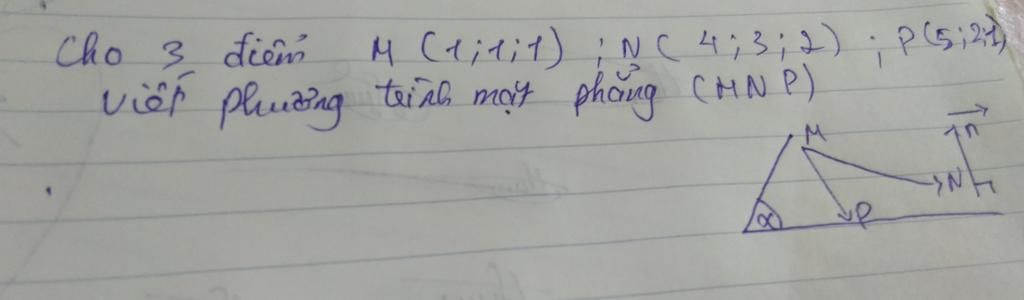 Cho 3 điểm M (1;1;1) ; N( 4 ; 3 ; 2) ; P(5;2;1)
Viết phương trình mặt phẳng (MNP)
M
n
N
α
P